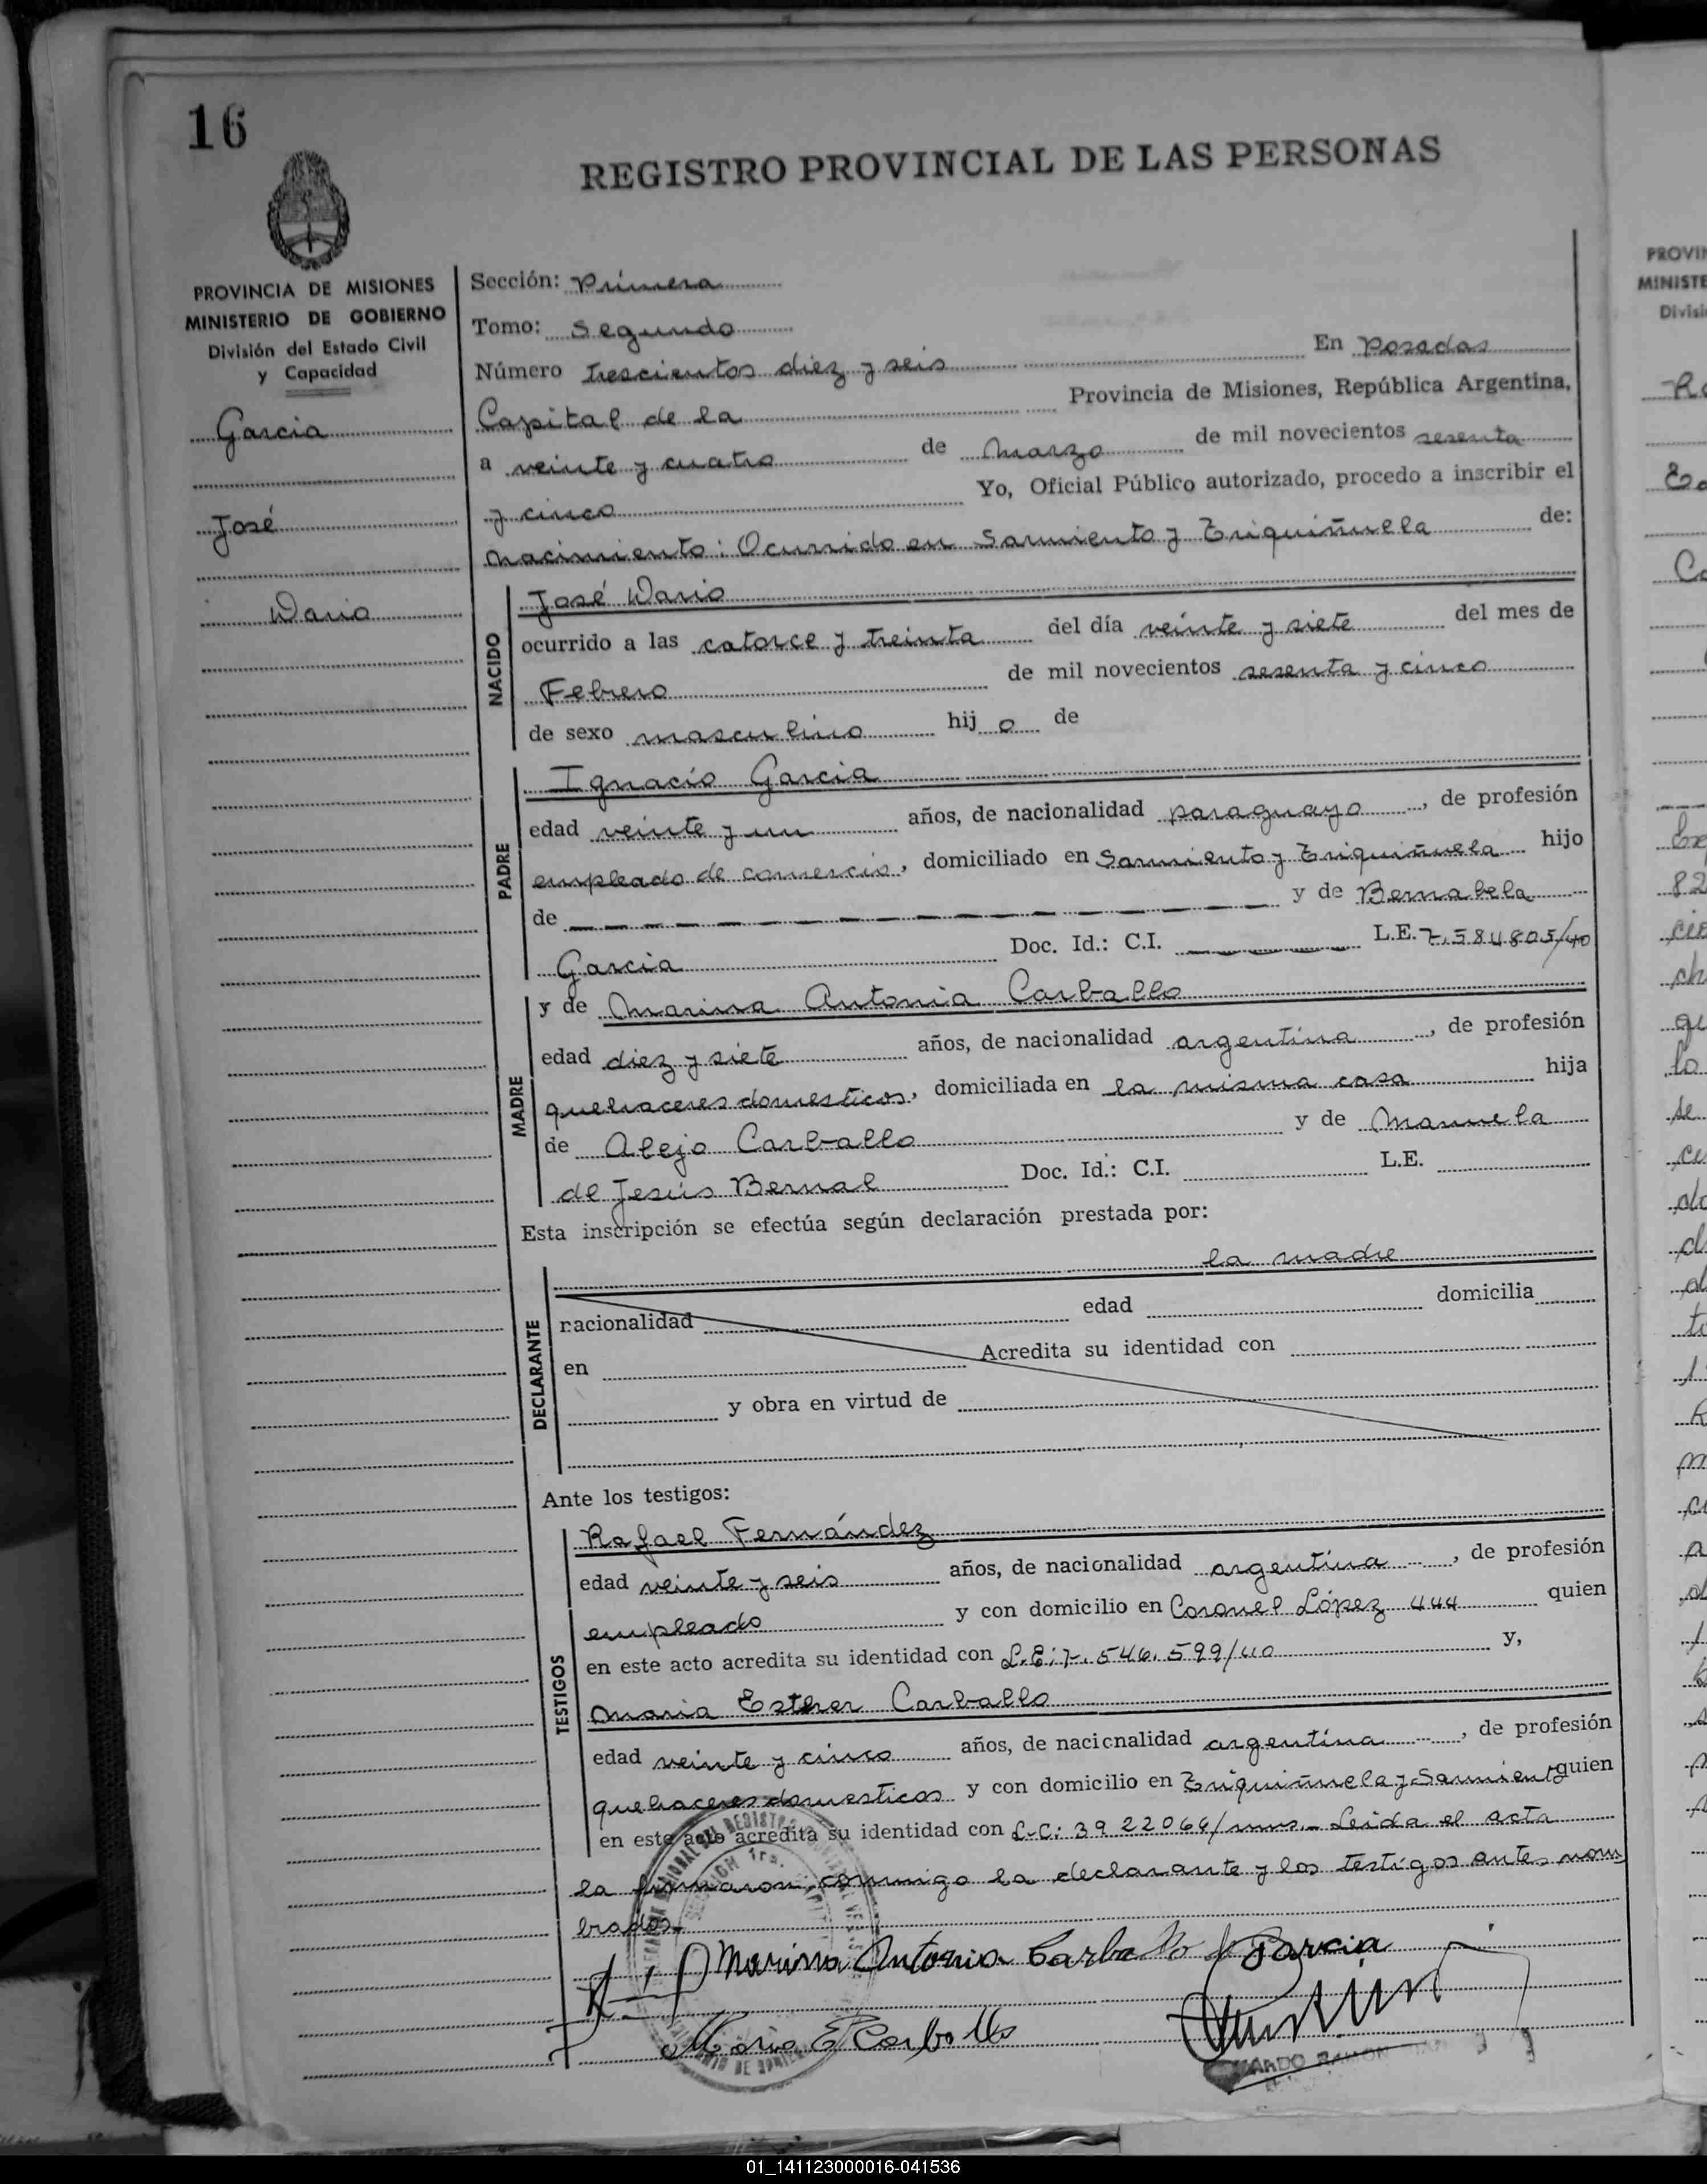 16
REGISTRO PROVINCIAL DE LAS PERSONAS
PROVINCIA DE MISIONES
MINISTERIO DE GOBIERNO
División del Estado Civil
y Capacidad
Garcia
José
Dario
Sección: Primera
Tomo: Segundo
Número trescientos diez y seis En Posadas
Capital de la Provincia de Misiones, República Argentina,
a veinte y cuatro de Marzo de mil novecientos sesenta
y cinco Yo, Oficial Público autorizado, procedo a inscribir el
nacimiento: Ocurrido en Sarmiento y Triquiñuela de:
NACIDO
José Dario
ocurrido a las catorce y treinta del día veinte y siete del mes de
Febrero de mil novecientos sesenta y cinco
de sexo masculino hij o de
PADRE
Ignacio Garcia
edad veinte y un años, de nacionalidad paraguayo, de profesión
empleado de comercio, domiciliado en Sarmiento y Triquiñuela hijo
de — y de Bernabela
Garcia Doc. Id.: C.I. — L.E. 7.584805/40
MADRE
y de Marina Antonia Carballo
edad diez y siete años, de nacionalidad argentina, de profesión
quehaceres domesticos, domiciliada en la misma casa hija
de Alejo Carballo y de Manuela
de Jesús Bernal Doc. Id.: C.I. L.E.
Esta inscripción se efectúa según declaración prestada por:
la madre
DECLARANTE
nacionalidad edad domicilia
en Acredita su identidad con
y obra en virtud de
Ante los testigos:
TESTIGOS
Rafael Fernández
edad veinte y seis años, de nacionalidad argentina, de profesión
empleado y con domicilio en Coronel López 444 quien
en este acto acredita su identidad con L.E: 7.546.599/40 y,
Maria Esther Carballo
edad veinte y cinco años, de nacionalidad argentina, de profesión
quehaceres domesticos y con domicilio en Triquiñuela y Sarmiento quien
en este acto acredita su identidad con L.C: 3922064/mns.- Leida el acta
la firmaron conmigo la declarante y los testigos antes nom
brados.-
Marina Antonia Carballo de Garcia
Maria E Carballo
01_141123000016-041536